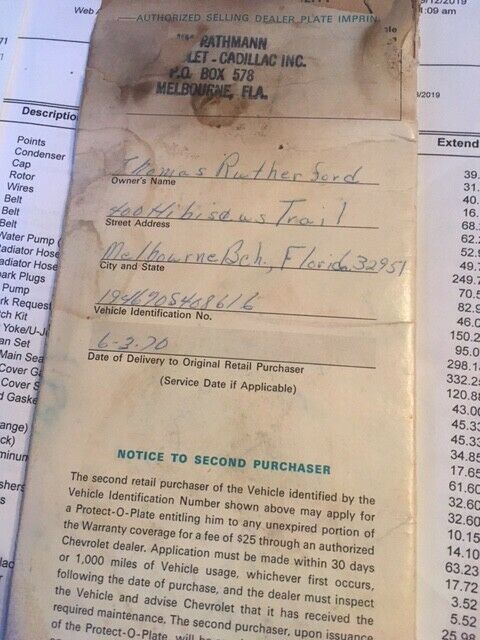 AUTHORIZED SELLING DEALER PLATE IMPRIN
RATHMANN
LET - CADILLAC INC.
P.O. BOX 578
MELBOURNE, FLA.
Thomas Rutherford
Owner's Name
400 Hibiscus Trail
Street Address
Melbourne Bch., Florida 32951
City and State
194670S408616
Vehicle Identification No.
6-3-70
Date of Delivery to Original Retail Purchaser
(Service Date if Applicable)
NOTICE TO SECOND PURCHASER
The second retail purchaser of the Vehicle identified by the
Vehicle Identification Number shown above may apply for
a Protect-O-Plate entitling him to any unexpired portion of
the Warranty coverage for a fee of $25 through an authorized
Chevrolet dealer. Application must be made within 30 days
or 1,000 miles of Vehicle usage, whichever first occurs,
following the date of purchase, and the dealer must inspect
the Vehicle and advise Chevrolet that it has received the
required maintenance. The second purchaser, upon issuance
of the Protect-O-Plate, will be
Descriptio
Points
Condenser
Cap
Rotor
Wires
Belt
Belt
Belt
Water Pump (
Radiator Hose
adiator Hose
ark Plugs
Pump
rk Request
ch Kit
Yoke/U-Jo
an Set
Main Sea
Cover Ga
Cover S
d Gaske
ange)
ck)
minum
shers
9/12/2019
1:09 am
/2019
Extend
39.
31.
40.
16.
68.
62.
52.9
49.7
249.7
70.5
82.9
46.0
150.2
95.0
298.1
332.2
120.8
43.00
45.33
45.33
34.85
17.65
61.60
32.60
32.60
10.15
14.10
63.23
17.72
3.52
5.52
25.98